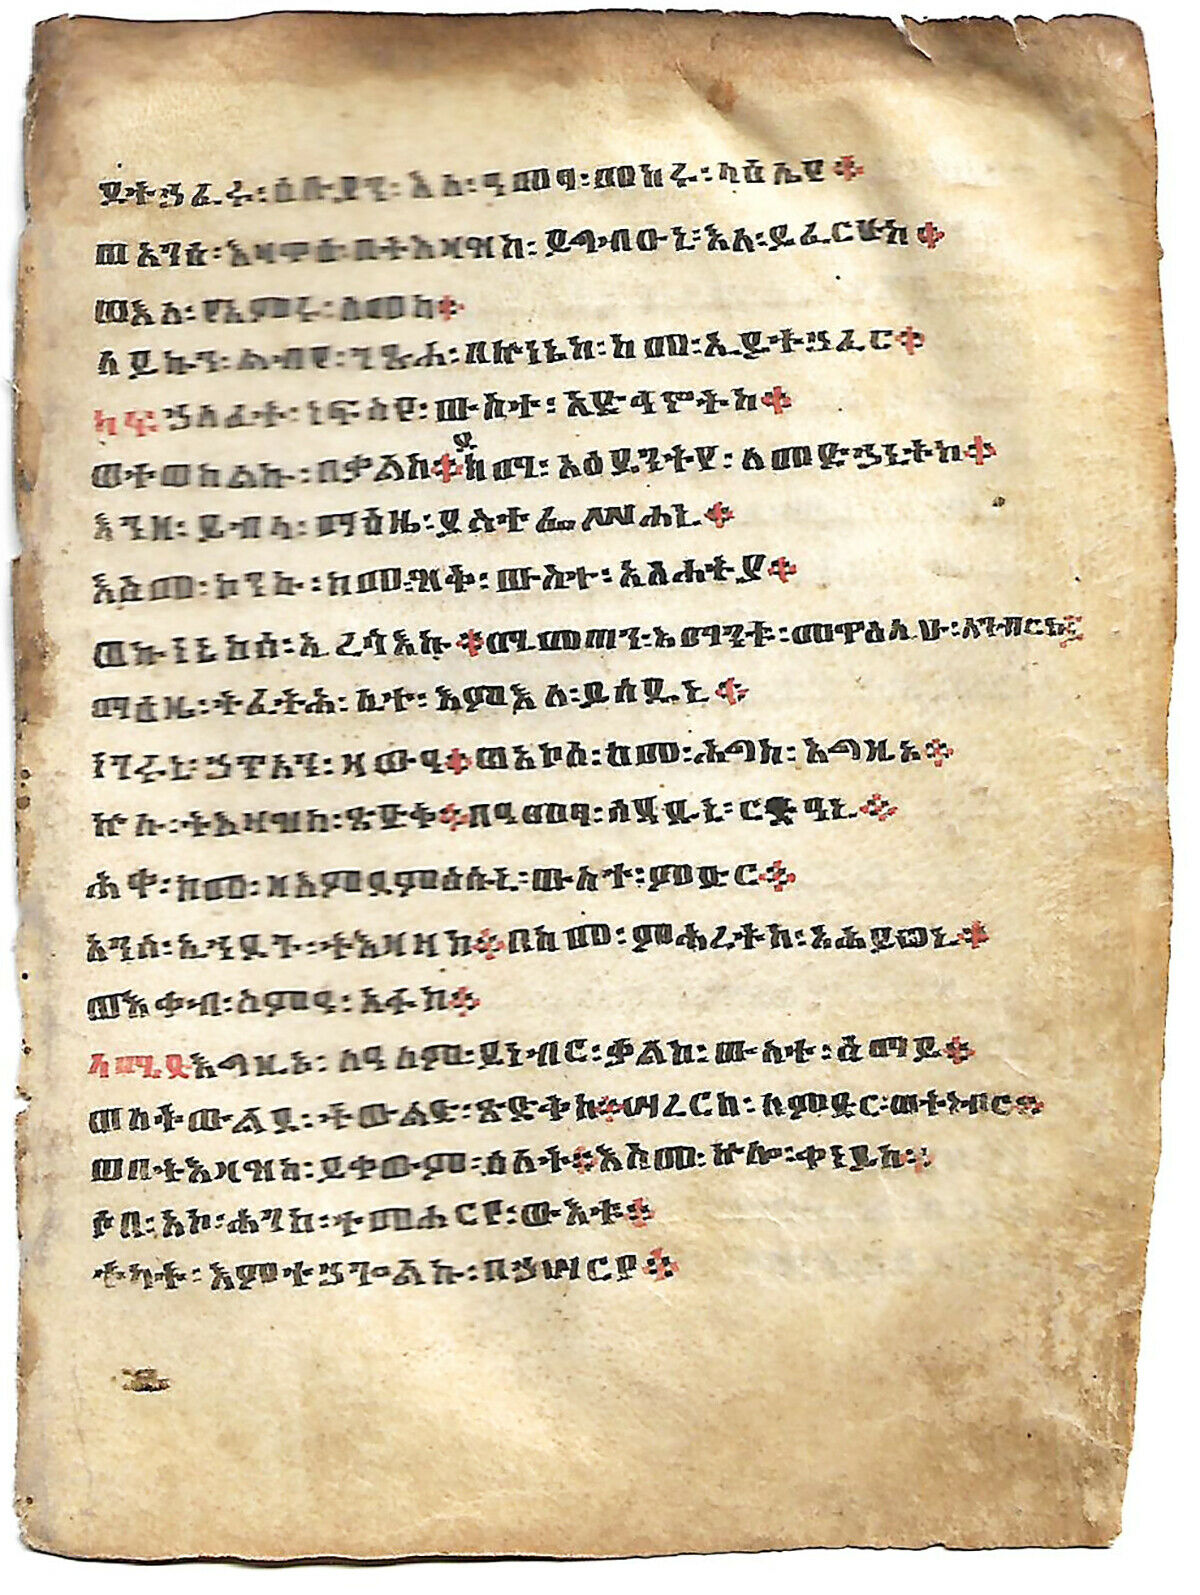 ይትኀፈሩ፡ዕቡያን፡እለ፡ዓመፃ፡መከሩ፡ላዕሌየ፨
ወአንሰ፡እዛዋዕ፡በትእዛዝከ፡ይግብኡኒ፡እለ፡ይፈርሁከ፨
ወእለ፡የአምሩ፡ስመከ፨
ለይኩን፡ልብየ፡ንጹሐ፡በኵነኔከ፡ከመ፡ኢይትኀፈር፨
ካፍ፡ኀለፈት፡ነፍስየ፡ውስተ፡አድኅኖትከ፨
ወተወከልኩ፡በቃልከ፨ደክማ፡አዕይንትየ፡ለመድኀኒትከ፨
እንዘ፡ይብላ፡ማዕዜ፡ያስተፌሥሓኒ፨
እስመ፡ኮንኩ፡ከመ፡ዝቅ፡ውስተ፡አስሐትያ፨
ወኵነኔከሰ፡ኢረሳእኩ፨ሚመጠን፡እማንቱ፡መዋዕሊሁ፡ለገብርከ፨
ማዕዜ፡ትፈትሕ፡ሊተ፡እምእለ፡ይሰዱኒ፨
ነገሩኒ፡ኃጥአን፡ዛውዓ፨ወአኮሰ፡ከመ፡ሕግከ፡እግዚኦ፨
ኵሉ፡ትእዛዝከ፡ጽድቅ፨በዓመፃ፡ሰደዱኒ፡ርድዓኒ፨
ሕቀ፡ከመ፡ዘእምደምሰሱኒ፡ውስተ፡ምድር፨
አንሰ፡ኢኀደጉ፡ትእዛዘከ፨በከመ፡ምሕረትከ፡አሕይወኒ፨
ወእቀብ፡ስምዓ፡አፉከ፨
ላሜድ፡እግዚኦ፡ለዓለም፡ይነብር፡ቃልከ፡ውስተ፡ሰማይ፨
ወለትውልደ፡ትውልድ፡ጽድቅከ፨ሣረርከ፡ለምድር፡ወትነብር፨
ወበትእዛዝከ፡ይቀውም፡ዕለት፨እስመ፡ኵሎ፡ቀነይከ፨
ሶበ፡አኮ፡ሕግከ፡ተመሐርየ፡ውእቱ፨
ትካት፡እምተኀጐልኩ፡በኃሣርየ፨